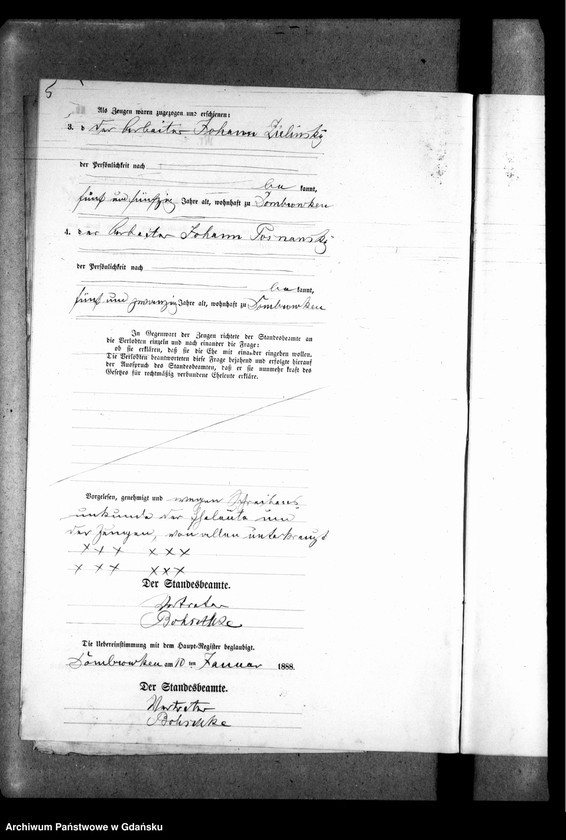 5
Als Zeugen waren zugezogen und erschienen:
3. der Arbeiter Johann Zielinsky
der Persönlichkeit nach
be kannt,
fünf und fünfzig Jahre alt, wohnhaft zu Dombrowken
4. der Arbeiter Johann Posnansky
der Persönlichkeit nach
be kannt,
fünf und zwanzig Jahre alt, wohnhaft zu Dombrowken
In Gegenwart der Zeugen richtete der Standesbeamte an
die Verlobten einzeln und nach einander die Frage:
ob sie erklären, daß sie die Ehe mit einander eingehen wollen.
Die Verlobten beantworteten diese Frage bejahend und erfolgte hierauf
der Ausspruch des Standesbeamten, daß er sie nunmehr kraft des
Gesetzes für rechtmäßig verbundene Eheleute erkläre.
Vorgelesen, genehmigt und wegen Schreibens-
unkunde der Eheleute und
der Zeugen, von allen unterkreuzt
+ + + × × ×
+ + + × × ×
Der Standesbeamte.
Vertreter
Bohschke
Die Uebereinstimmung mit dem Haupt-Register beglaubigt.
Dombrowken am 10 ten Januar 1888.
Der Standesbeamte.
Vertreter
Bohschke
Archiwum Państwowe w Gdańsku